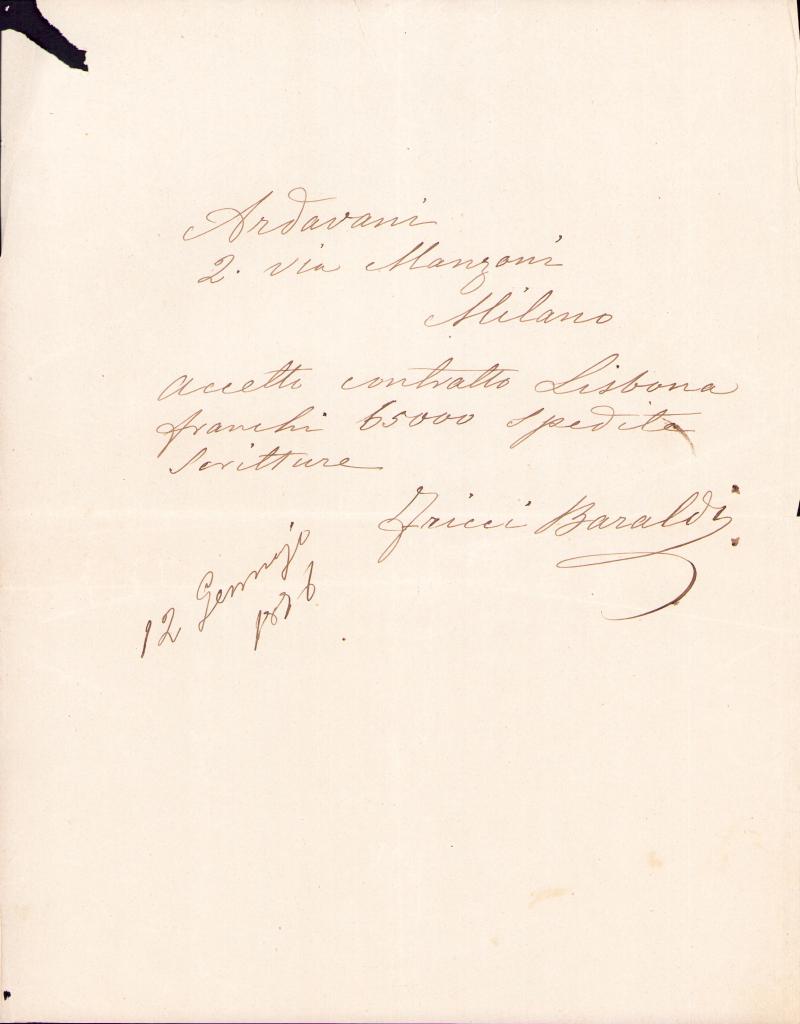 Ardavani
2. via Manzoni
Milano
accetto contratto Lisbona
franchi 65000 spedite
scritture
Fricci Baraldi
12 Gennajo
1876